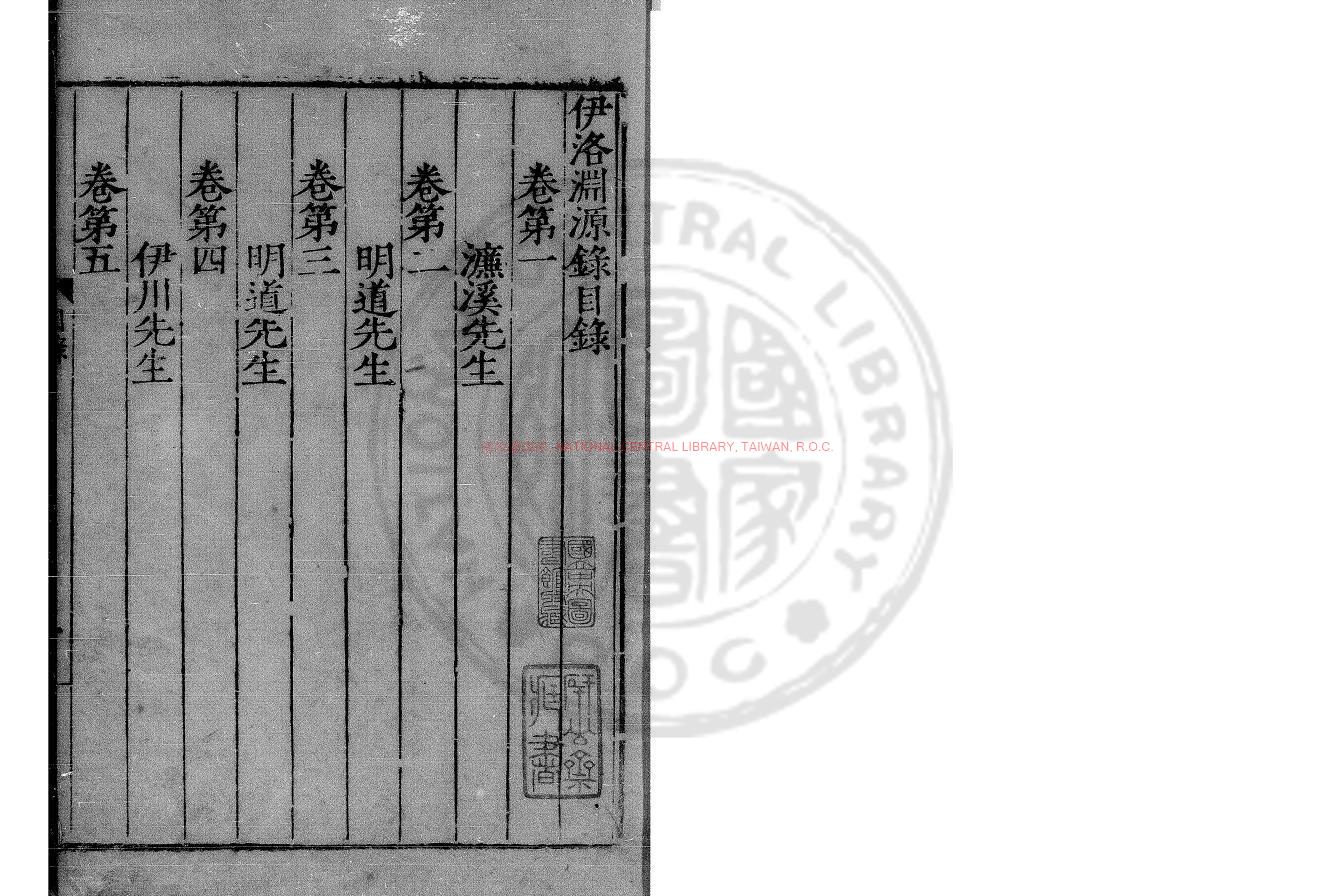 伊洛淵源錄目錄
卷第一
濂溪先生
卷第二
明道先生
卷第三
明道先生
卷第四
伊川先生
卷第五
國立中央圖書館藏書
NATIONAL CENTRAL LIBRARY, TAIWAN, R.O.C.